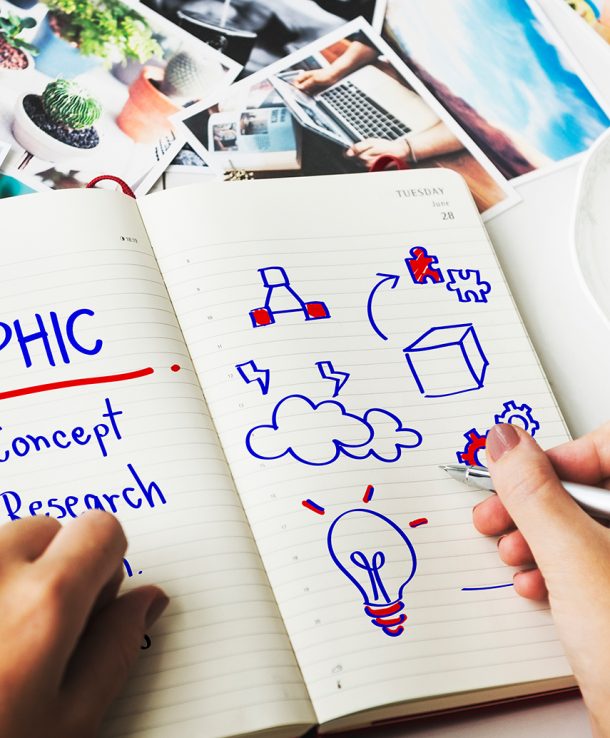 PHIC
Concept
Research
n.
TUESDAY
June
28